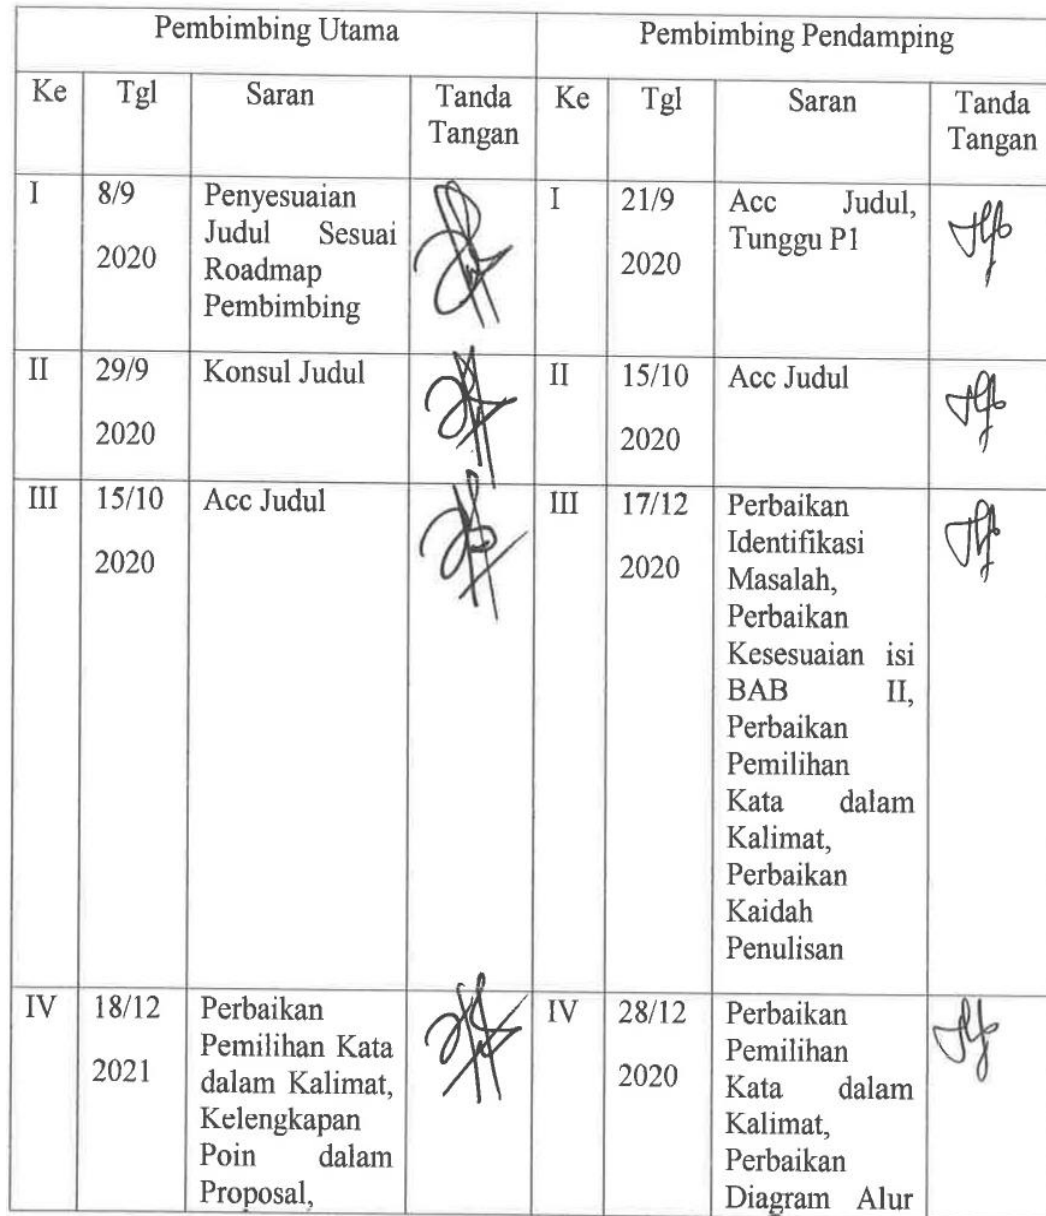 Pembimbing Utama
Pembimbing Pendamping
Ke
Tgl
Saran
Tanda
Tangan
Ke
Tgl
Saran
Tanda
Tangan
I
8/9
2020
Penyesuaian
Judul Sesuai
Roadmap
Pembimbing
I
21/9
2020
Acc Judul,
Tunggu P1
II
29/9
2020
Konsul Judul
II
15/10
2020
Acc Judul
III
15/10
2020
Acc Judul
III
17/12
2020
Perbaikan
Identifikasi
Masalah,
Perbaikan
Kesesuaian isi
BAB II,
Perbaikan
Pemilihan
Kata dalam
Kalimat,
Perbaikan
Kaidah
Penulisan
IV
18/12
2021
Perbaikan
Pemilihan Kata
dalam Kalimat,
Kelengkapan
Poin dalam
Proposal,
IV
28/12
2020
Perbaikan
Pemilihan
Kata dalam
Kalimat,
Perbaikan
Diagram Alur